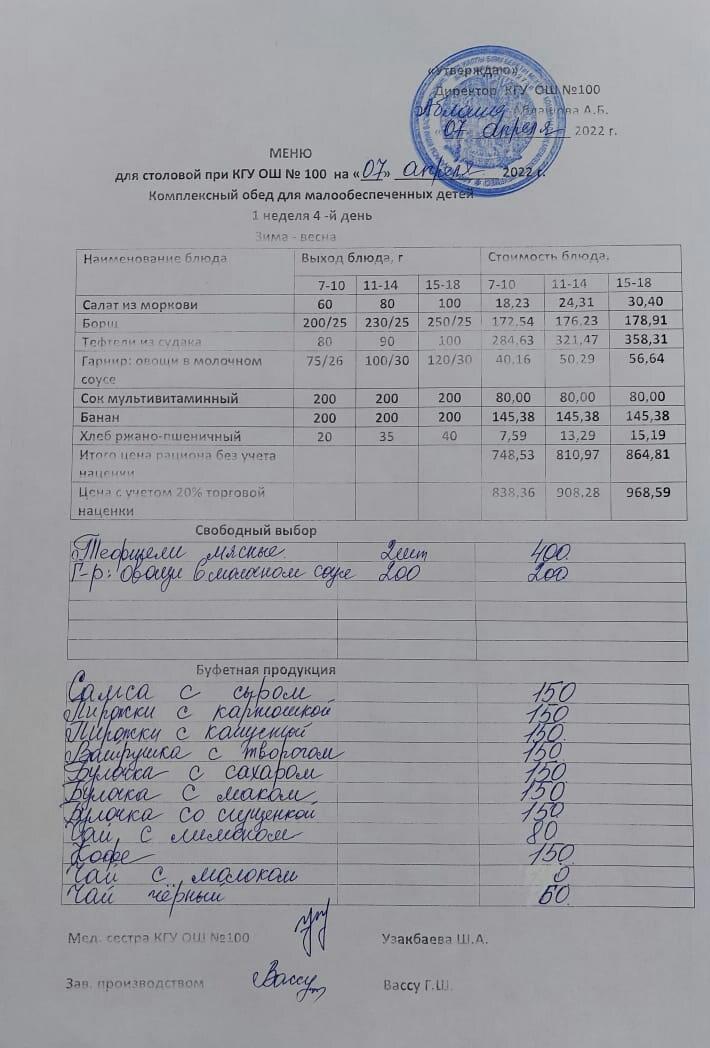 «Утверждаю»
Директор КГУ ОШ №100
Аблашова А.Б.
«07» апреля 2022 г.
МЕНЮ
для столовой при КГУ ОШ № 100 на «07» апреля 2022 г.
Комплексный обед для малообеспеченных детей
1 неделя 4 -й день
Зима - весна
Наименование блюда Выход блюда, г Стоимость блюда.
7-10 11-14 15-18 7-10 11-14 15-18
Салат из моркови 60 80 100 18,23 24,31 30,40
Борщ 200/25 230/25 250/25 172,54 176,23 178,91
Тефтели из судака 80 90 100 284,63 321,47 358,31
Гарнир: овощи в молочном 75/26 100/30 120/30 40,16 50,29 56,64
соусе
Сок мультивитаминный 200 200 200 80,00 80,00 80,00
Банан 200 200 200 145,38 145,38 145,38
Хлеб ржано-пшеничный 20 35 40 7,59 13,29 15,19
Итого цена рациона без учета 748,53 810,97 864,81
наценки
Цена с учетом 20% торговой 838,36 908,28 968,59
наценки
Свободный выбор
мясные 2шт 400.
Г-р: Овощи в молочном соусе 200 200
Буфетная продукция
Самса с сыром 150
Пирожки с картошкой 150
Пирожки с капустой 150.
Ватрушка с творогом 150.
Булочка с сахаром 150
Булочка с маком. 150
Булочка со сгущенкой 150
Чай с лимоном 80
Кофе 150.
Чай с молоком 0
Чай чёрный 60.
Мед. сестра КГУ ОШ №100 Узакбаева Ш.А.
Зав. производством Вассу Вассу Г.Ш.